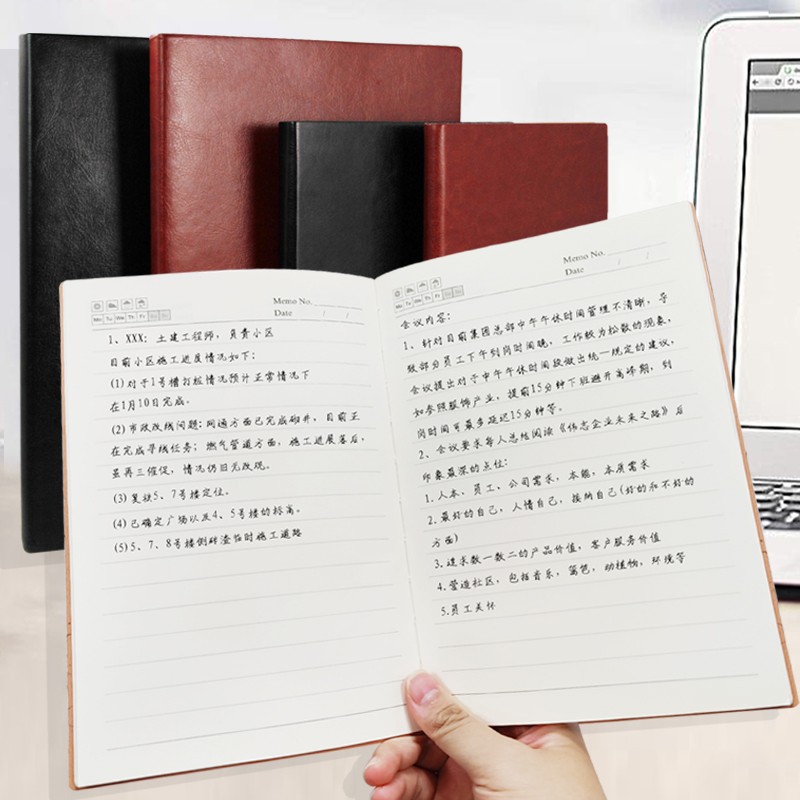 Memo No.
Mo Tu We Th Fr Sa Su
Date / /
1、XXX：土建工程师，负责小区
目前小区施工进度情况如下：
(1)对于1号楼打桩情况预计正常情况下
在1月10日完成。
(2)市政改线问题：网通方面已完成砌井，目前正
在完成寻线任务；燃气管道方面，施工进展落后，
虽再三催促，情况仍旧无改观。
(3)复核5、7号楼定位。
(4)已确定广场以及4、5号楼的标高。
(5)5、7、8号楼侧砖渣临时施工道路
Memo No.
Mo Tu We Th Fr Sa Su
Date / /
会议内容：
1、针对目前集团总部中午午休时间管理不清晰，导
致部分员工下午到岗时间晚，工作较为松散的现象，
会议提出对于中午午休时间段做出统一规定的建议，
如参照服饰产业，提前15分钟下班避开高峰期，到
岗时间可最多延迟15分钟等。
2、会议要求每人总结阅读《伟志企业未来之路》后
印象最深的点位：
1.人本、员工、公司需求，本能，本质需求
2.最好的自己，人情自己，接纳自己(好的和不好的
方面)
3.追求数一数二的产品价值，客户服务价值
4.营造社区，包括音乐，篱笆，动植物，环境等
5.员工关怀